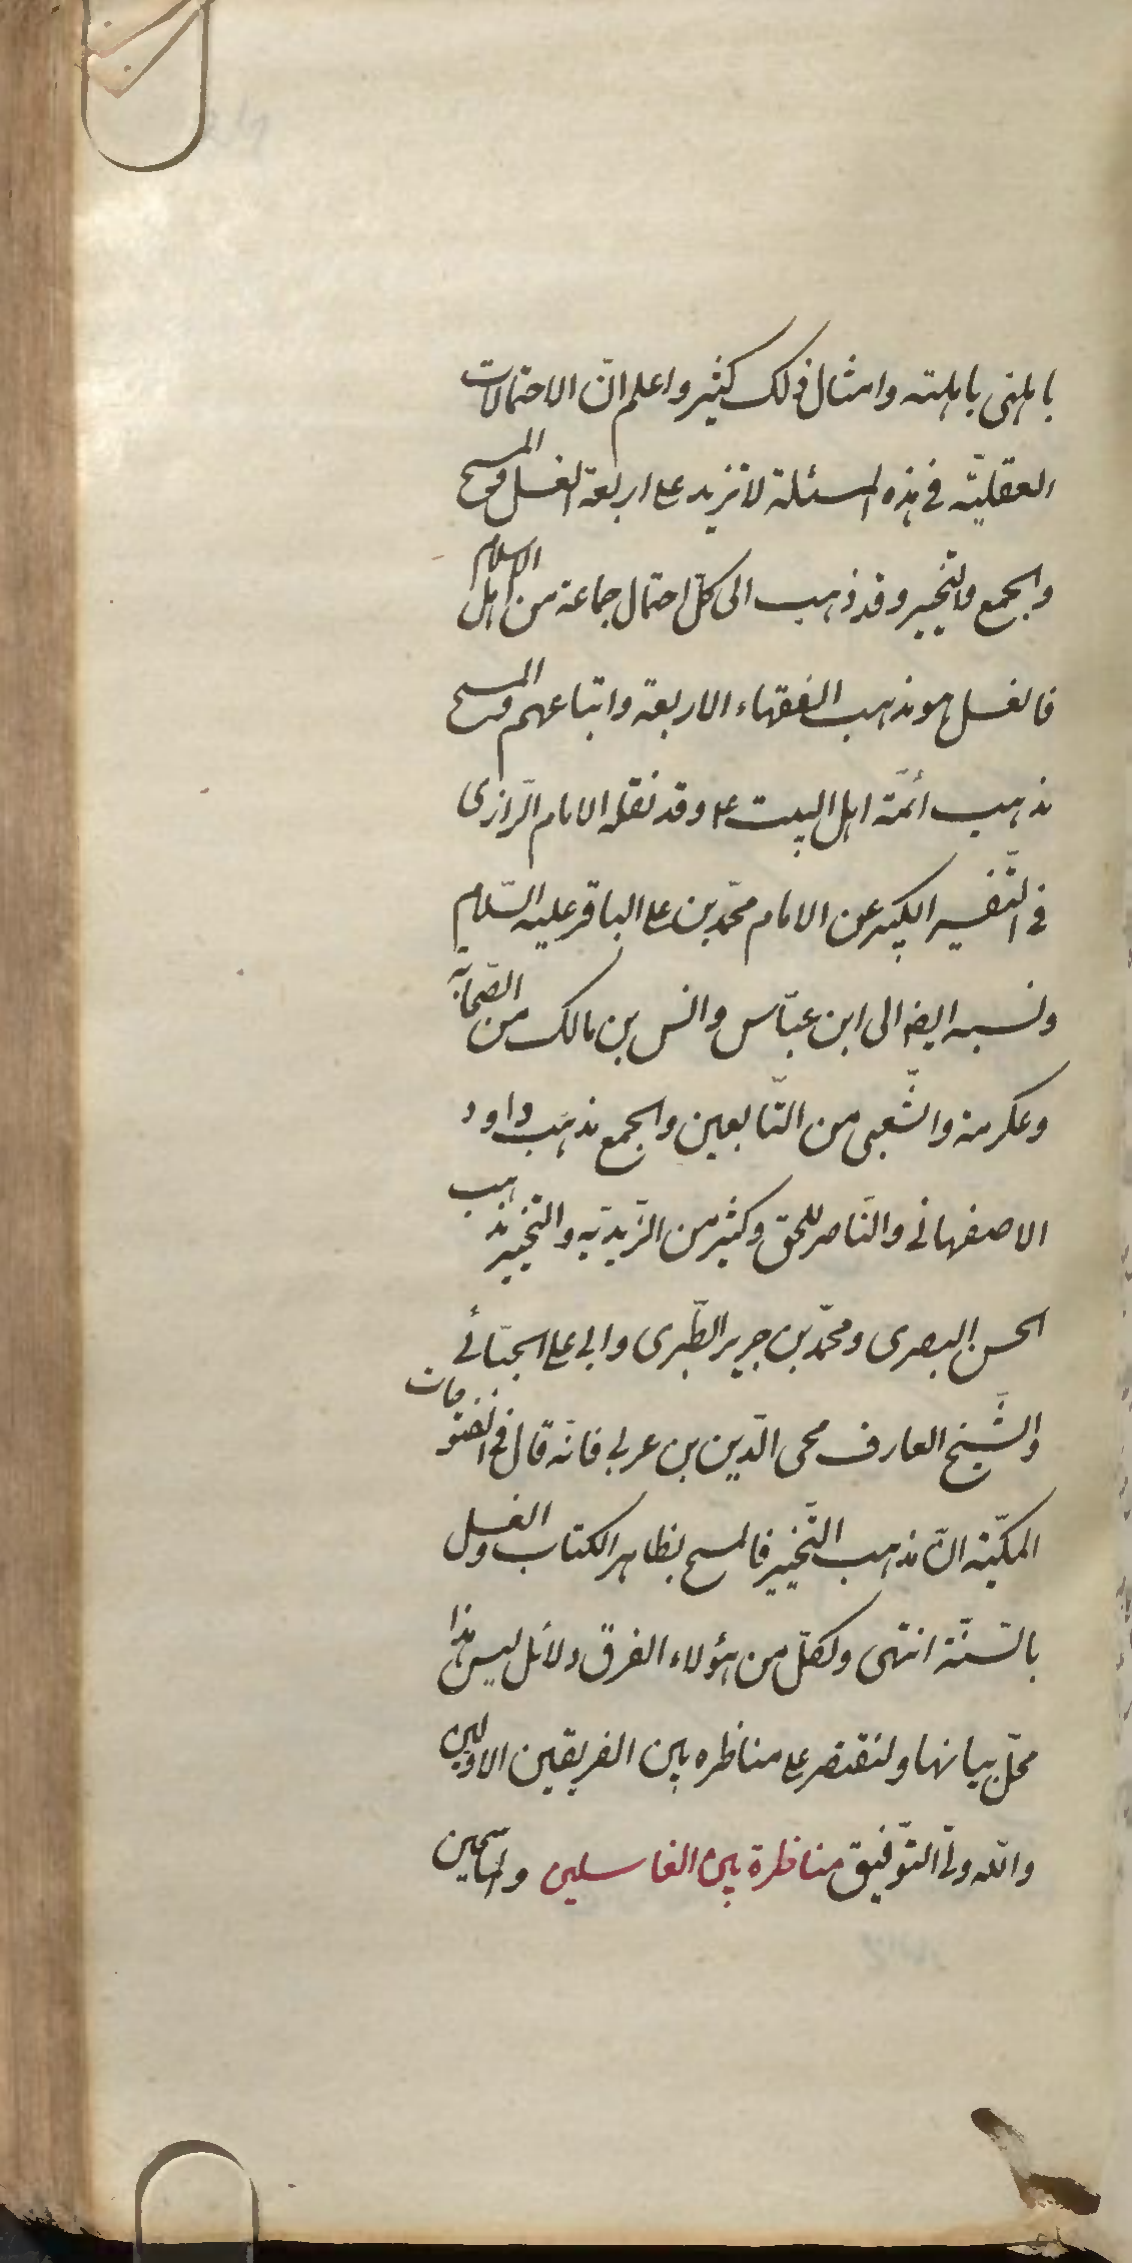 باهلنى باهلته وامثال ذلك كثير واعلم انّ الاحتمالات
العقليّة فى هذه المسئلة لا تزيد على اربعة الغسل والمسح
والجمع والتخيير وقد ذهب الى كلّ احتمال جماعة من اهل الاسلام
فالغسل هو مذهب الفقهاء الاربعة واتباعهم والمسح
مذهب أئمّة اهل البيت ع وقد نقله الامام الرّازى
فى التّفسير الكبير عن الامام محمّد بن على الباقر عليه السّلام
ونسبه ايضا الى ابن عبّاس وانس بن مالك من الصّحابة
وعكرمة والشّعبى من التّابعين والجمع مذهب داود
الاصفهانى والنّاصر للحق وكثير من الزّيديّه والتخيير مذهب
الحسن البصرى ومحمّد بن جرير الطّبرى وابى على الجبّائى
والشّيخ العارف محى الدّين بن عربى فانّه قال فى الفتوحات
المكيّة انّ مذهب التّخيير فالمسح بظاهر الكتاب والغسل
بالسّنّة انتهى ولكلّ من هؤلاء الفرق دلائل ليس هذا
محلّ بيانها ولنقتصر على مناظره بين الفريقين الاولين
واللّه ولىّ التّوفيق مناظرة بين الغاسلين والماسحين